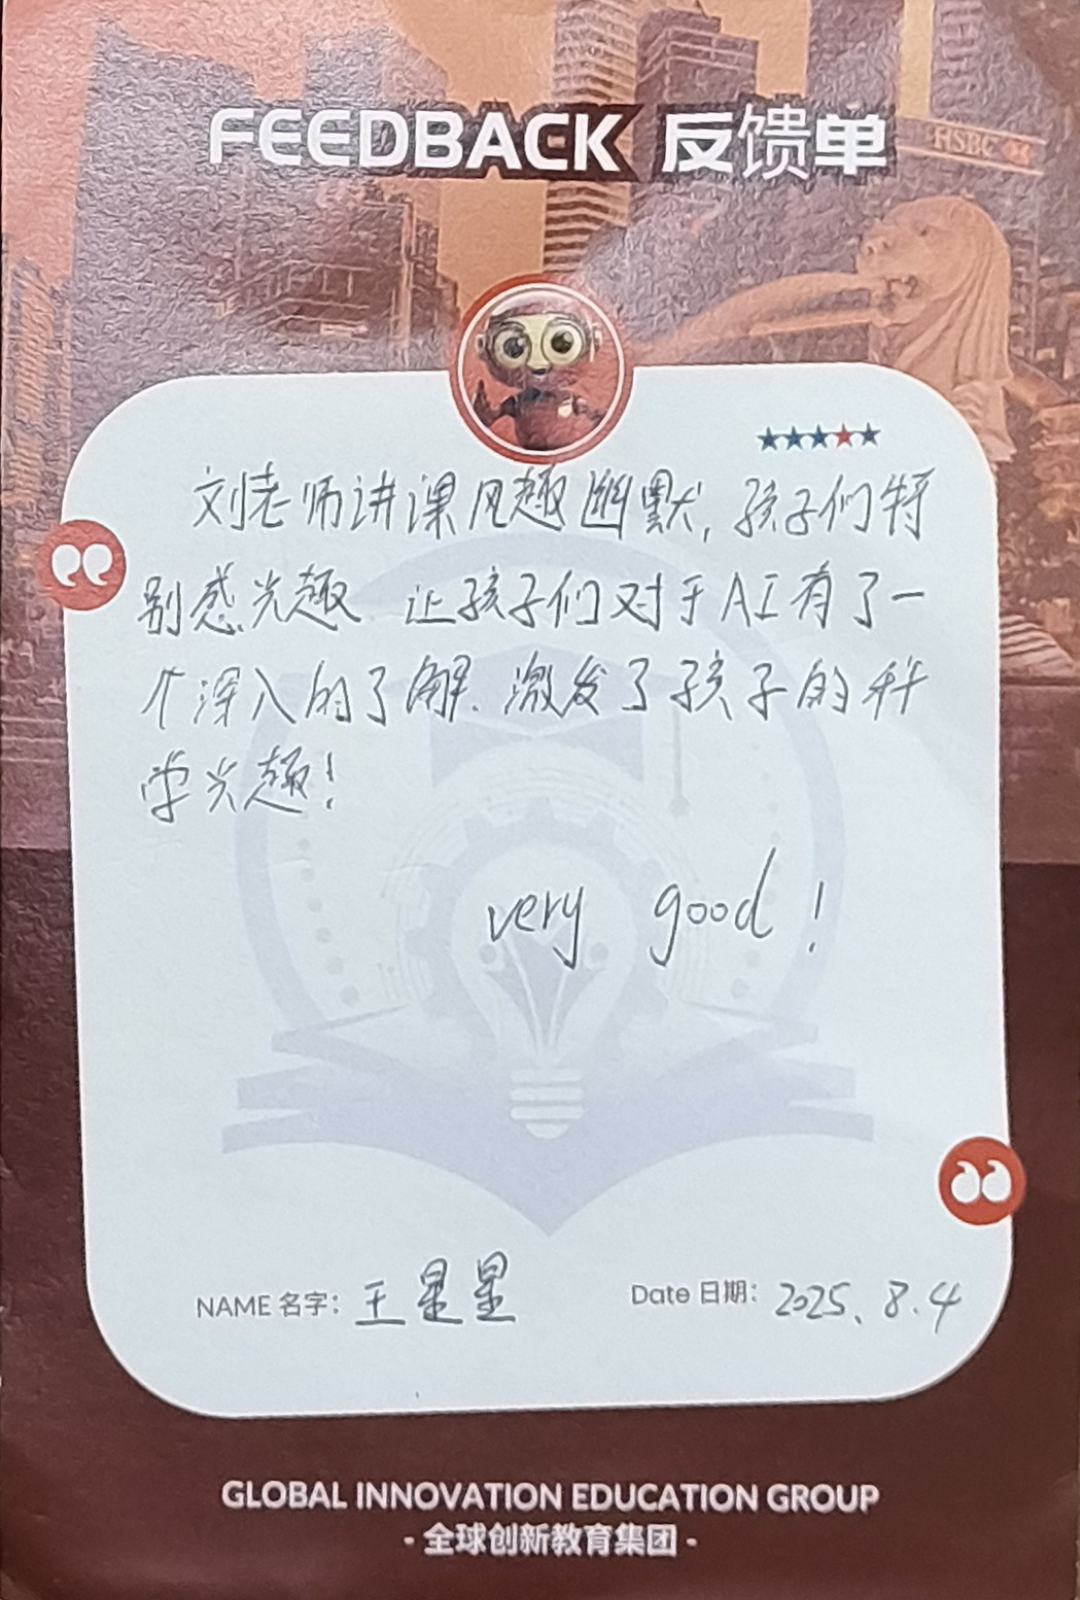 FEEDBACK 反馈单
HSBC
刘老师讲课风趣幽默,孩子们特
别感兴趣 让孩子们对于AI有了一
个深入的了解.激发了孩子的科
学兴趣!
very good !
NAME 名字: 王星星 Date 日期: 2025.8.4
GLOBAL INNOVATION EDUCATION GROUP
- 全球创新教育集团 -